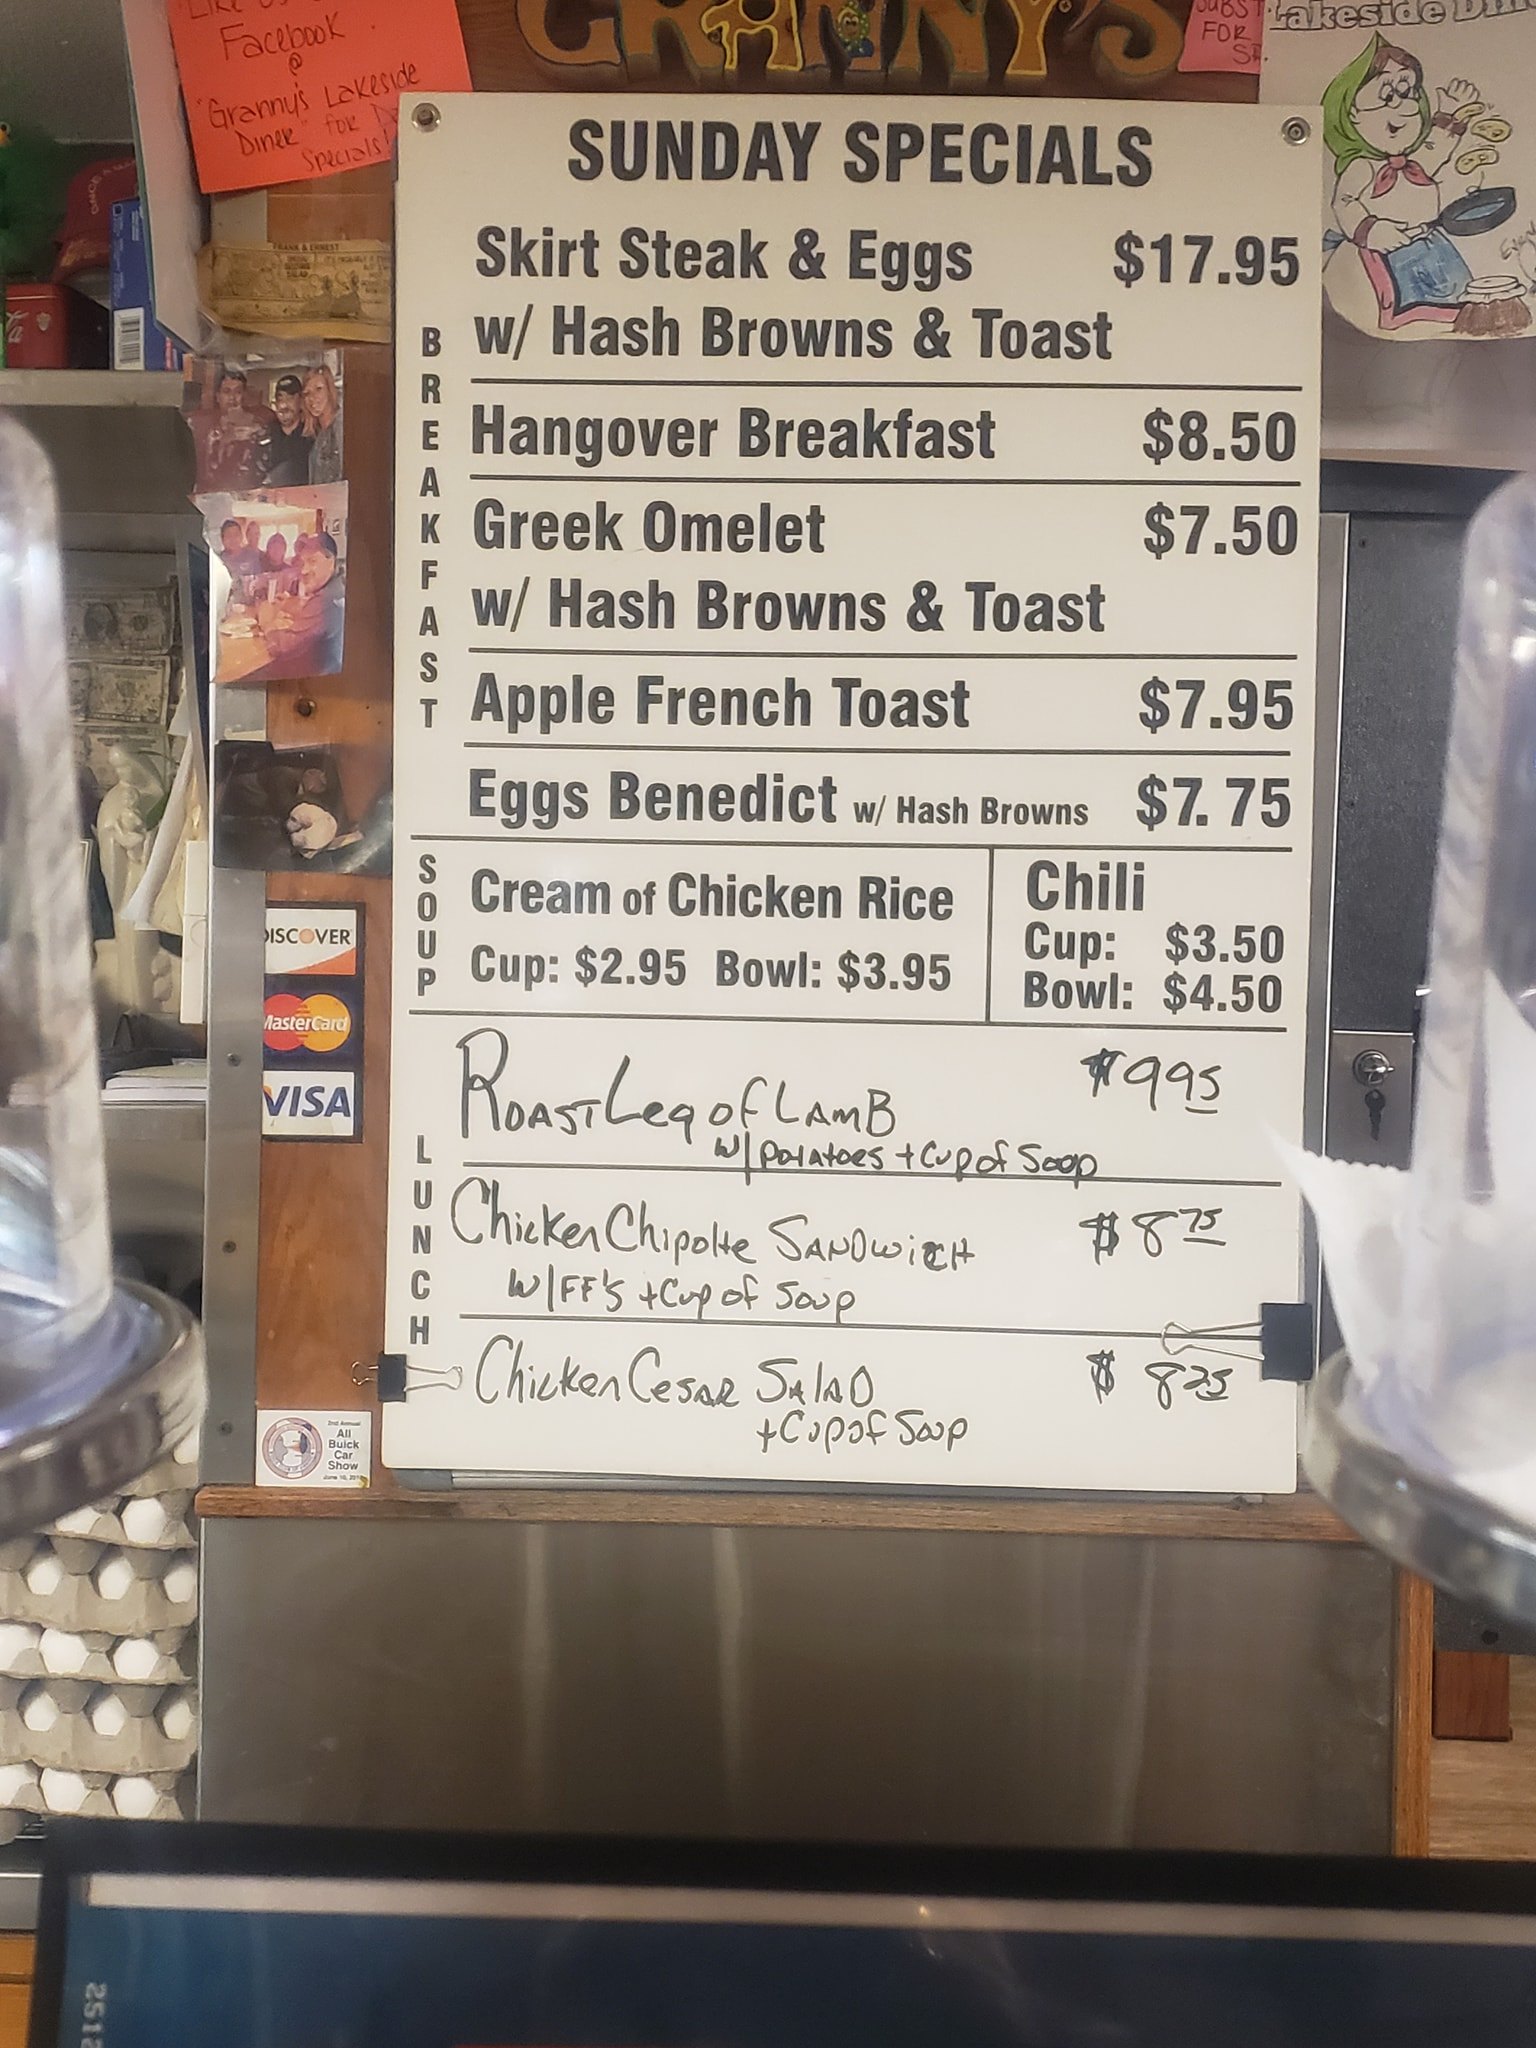 Facebook
@
"Granny's Lakeside
Diner" for
Specials!
GRANNY'S
FOR
Lakeside
FRANK & ERNEST
SUNDAY SPECIALS
BREAKFAST
Skirt Steak & Eggs $17.95
w/ Hash Browns & Toast
Hangover Breakfast $8.50
Greek Omelet $7.50
w/ Hash Browns & Toast
Apple French Toast $7.95
Eggs Benedict w/ Hash Browns $7.75
SOUP
Cream of Chicken Rice
Cup: $2.95 Bowl: $3.95
Chili
Cup: $3.50
Bowl: $4.50
LUNCH
Roast Leg of Lamb $995
w/ Potatoes + Cup of Soup
Chicken Chipolte Sandwich $875
w/ FF's + Cup of Soup
Chicken Cesar Salad $825
+ Cup of Soup
DISCOVER
MasterCard
VISA
2nd Annual
All
Buick
Car
Show